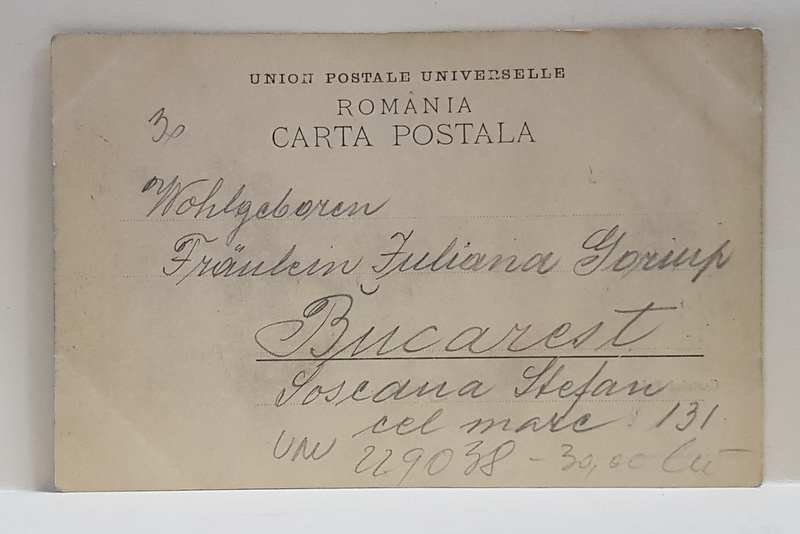 UNION POSTALE UNIVERSELLE
ROMÂNIA
CARTA POSTALA
30
Wohlgeboren
Fräulein Juliana Goriup
Bucarest
Soseaua Stefan
cel mare 131
UNU
229038 - 30,00 Lei